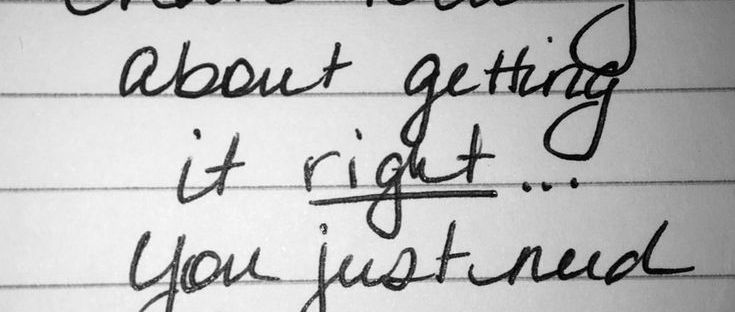 about getting
it right...
you just need